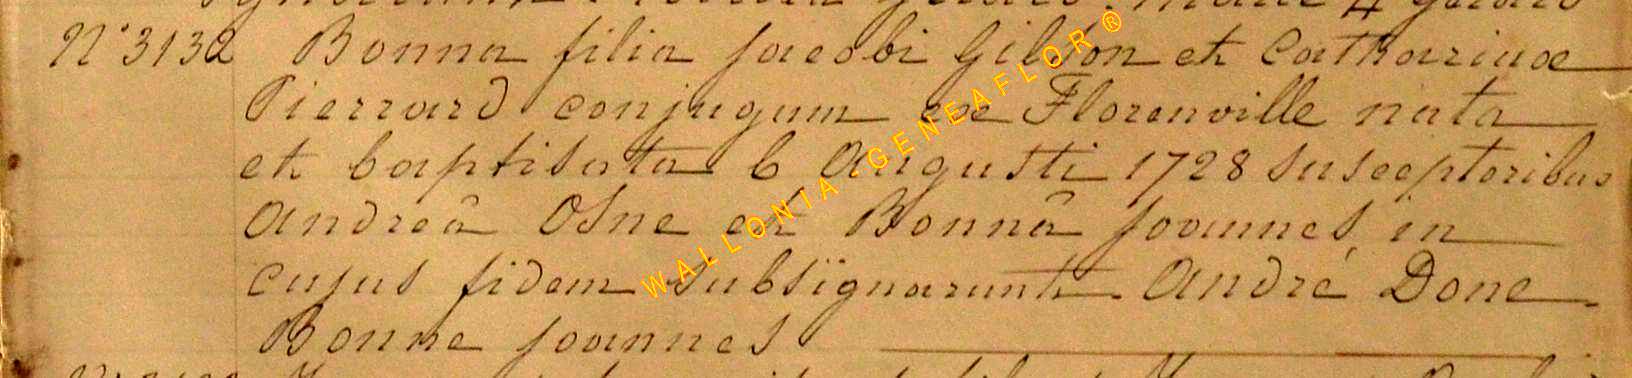 N° 3132 Bonna filia Jacobi Gilson et Catharinae
Pierrard conjugum ex Florenville nata
et baptisata 6 Augusti 1728 susceptoribus
Andreâ Osne et Bonnâ Joannes, in
cujus fidem subsignarunt André Done
Bonne Joannes
WALLONIA-GENEAFLOR®